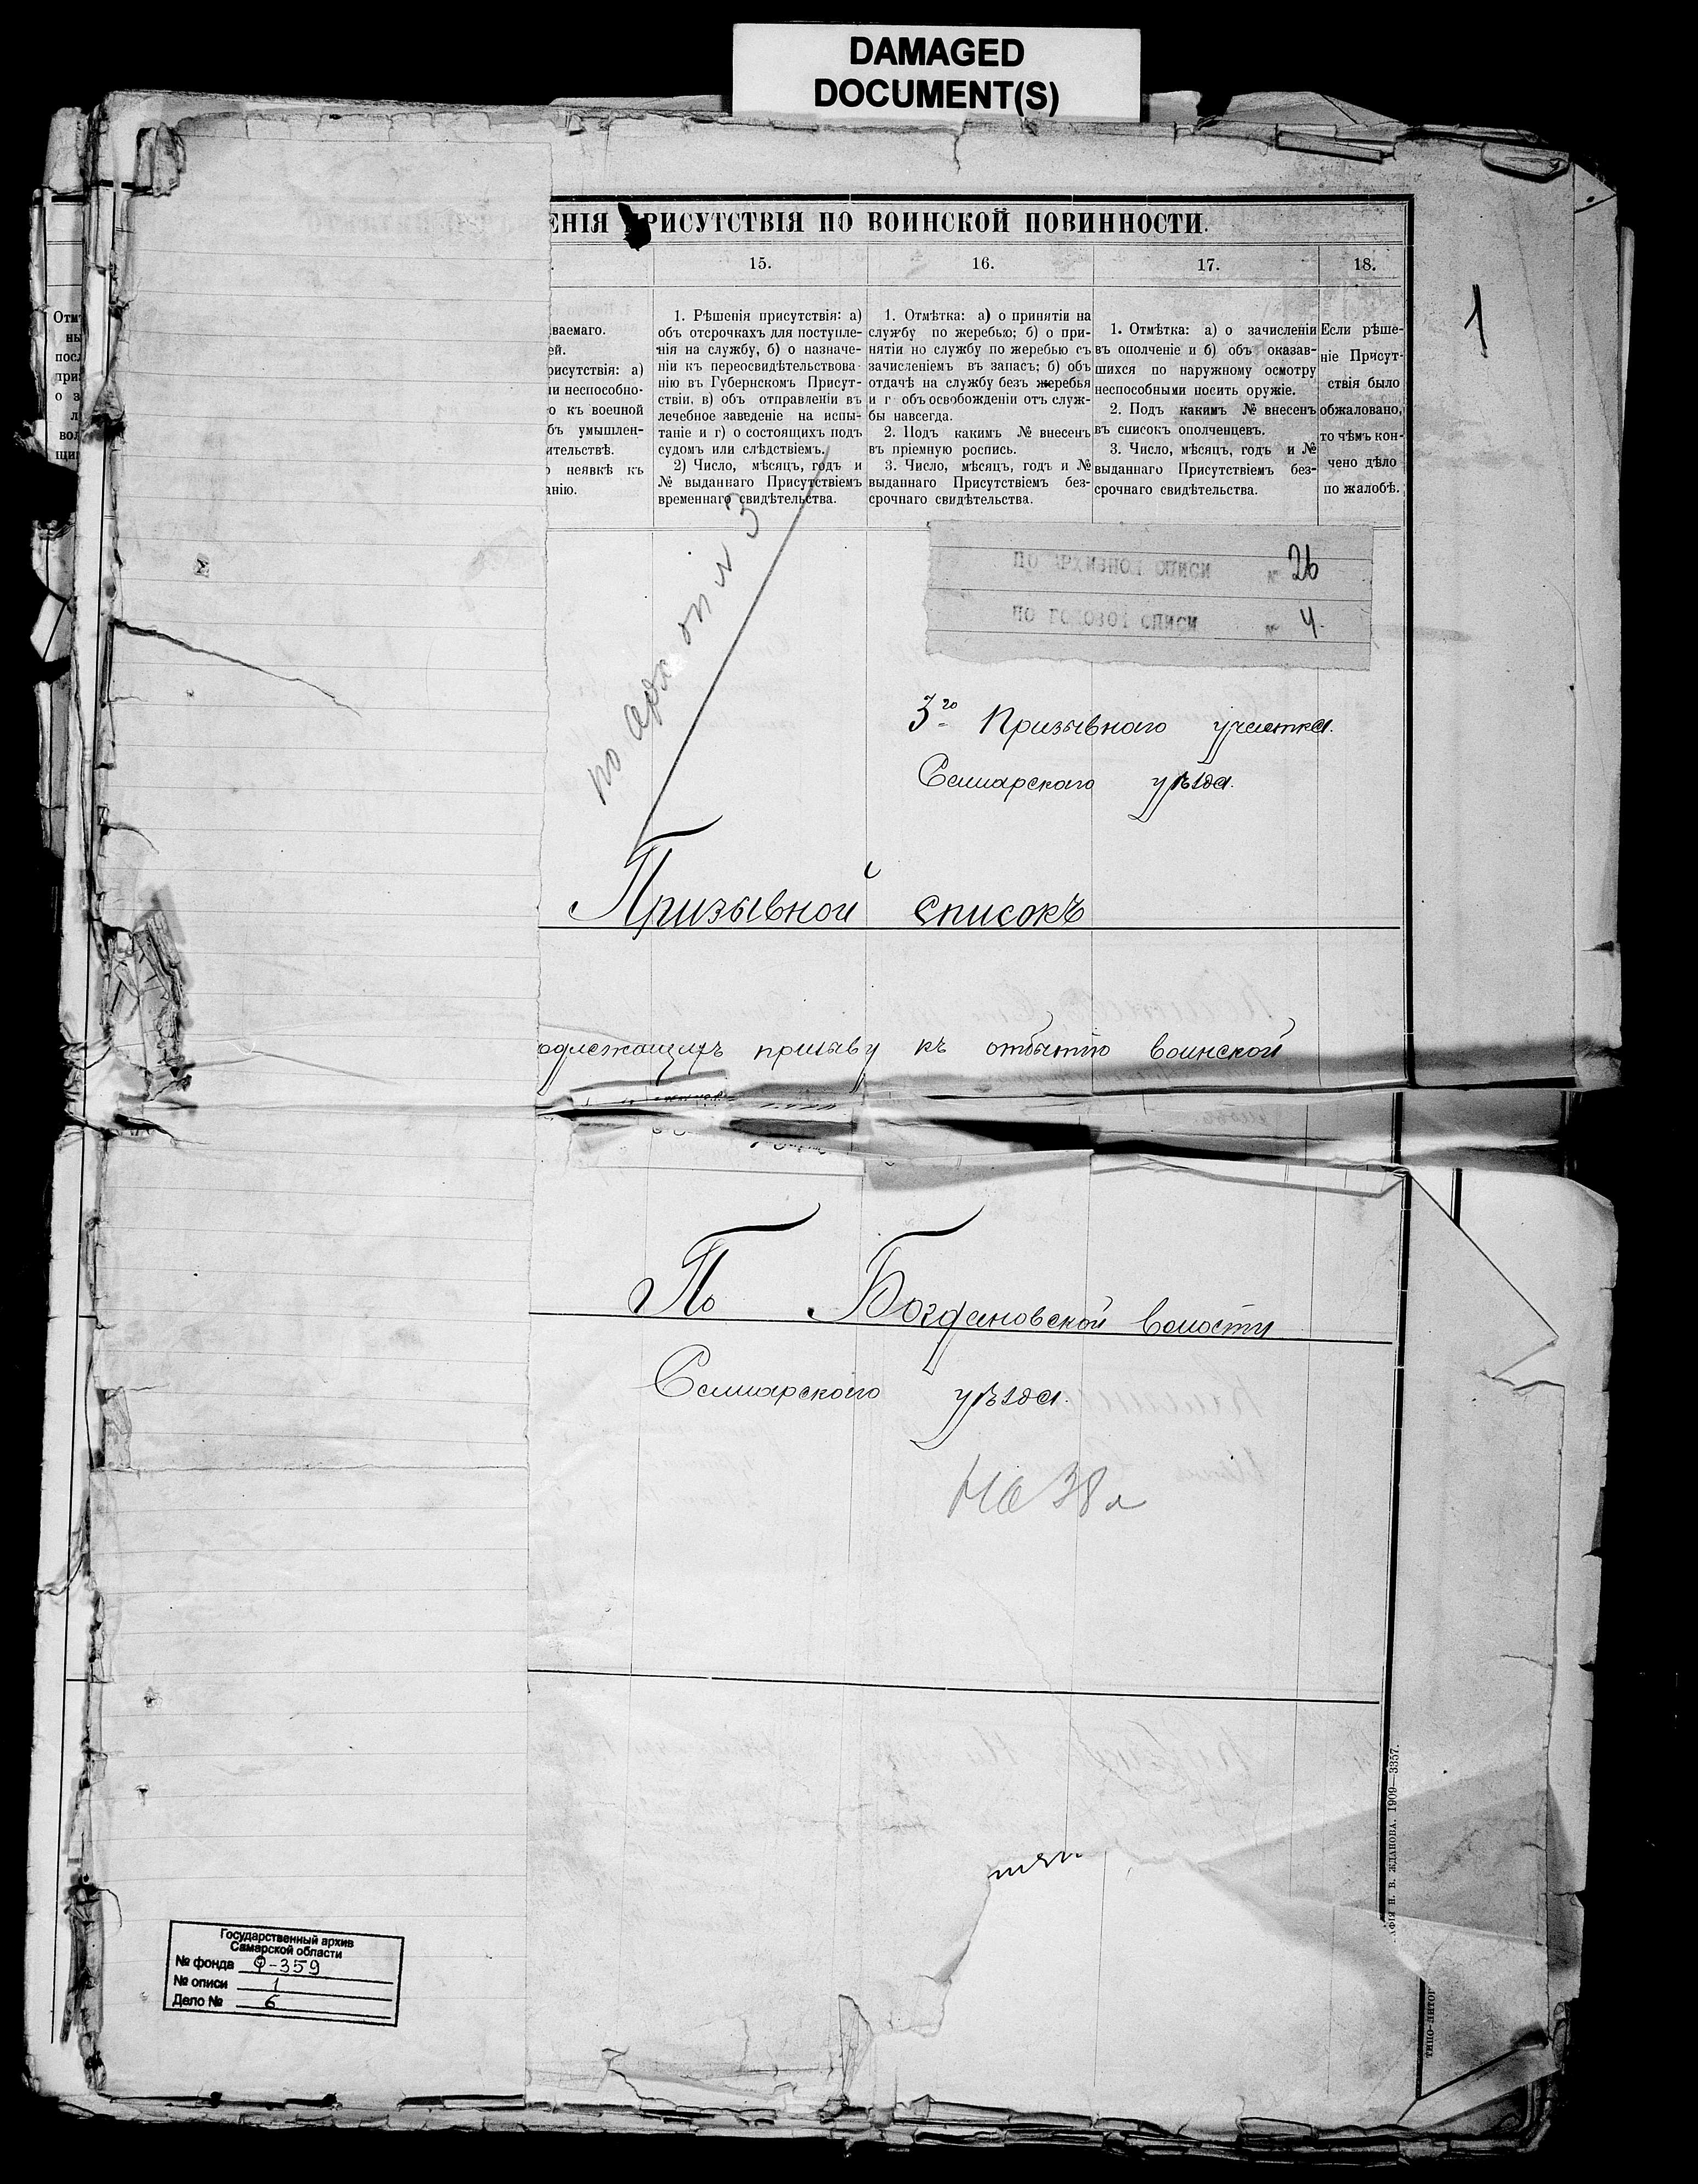 DAMAGED
DOCUMENT(S)
ЕНІЯ ПРИСУТСТВІЯ ПО ВОИНСКОЙ ПОВИННОСТИ.
15.
16.
17.
18.
ваемаго.
ей.
рисутствія: а)
ли неспособно-
о къ военной
бъ умышлен-
ительствѣ.
о неявкѣ къ
анію.
1. Рѣшенія присутствія: а)
объ отсрочкахъ для поступле-
нія на службу, б) о назначе-
ніи къ переосвидѣтельствова-
нію въ Губернскомъ Присут-
ствіи, в) объ отправленіи въ
лечебное заведеніе на испы-
таніе и г) о состоящихъ подъ
судомъ или слѣдствіемъ.
2) Число, мѣсяцъ, годъ и
№ выданнаго Присутствіемъ
временнаго свидѣтельства.
1. Отмѣтка: а) о принятіи на
службу по жеребью; б) о при-
нятіи но службу по жеребью съ
зачисленіемъ въ запасъ; б) объ
отдачѣ на службу безъ жеребья
и г объ освобожденіи отъ служ-
бы навсегда.
2. Подъ какимъ № внесенъ
въ пріемную роспись.
3. Число, мѣсяцъ, годъ и №
выданнаго Присутствіемъ без-
срочнаго свидѣтельства.
1. Отмѣтка: а) о зачисленіи
въ ополченіе и б) объ оказав-
шихся по наружному осмотру
неспособными носить оружіе.
2. Подъ какимъ № внесенъ
въ списокъ ополченцевъ.
3. Число, мѣсяцъ, годъ и №
выданнаго Присутствіемъ без-
срочнаго свидѣтельства.
Если рѣше-
ніе Присут-
ствія было
обжаловано,
то чѣмъ кон-
чено дѣло
по жалобѣ.
1
Отмѣ
ны
посл
приз
о з
л
вол
щи
по арх оп № 3
ПО АРХИВНОЙ ОПИСИ № 26
ПО ГОДОВОЙ ОПИСИ № 4
3го Призывного участка.
Самарского уѣзда.
Призывной списокъ
одлежащихъ призыву къ отбытію воинской
По Богдановской волости
Самарского уѣзда.
На 38 л
АФІЯ Н. В. ЖДАНОВА. 1909—3357.
ТИПО-ЛИТОГ
Государственный архив
Самарской области
№ фонда Ф-359
№ описи 1
Дело № 6